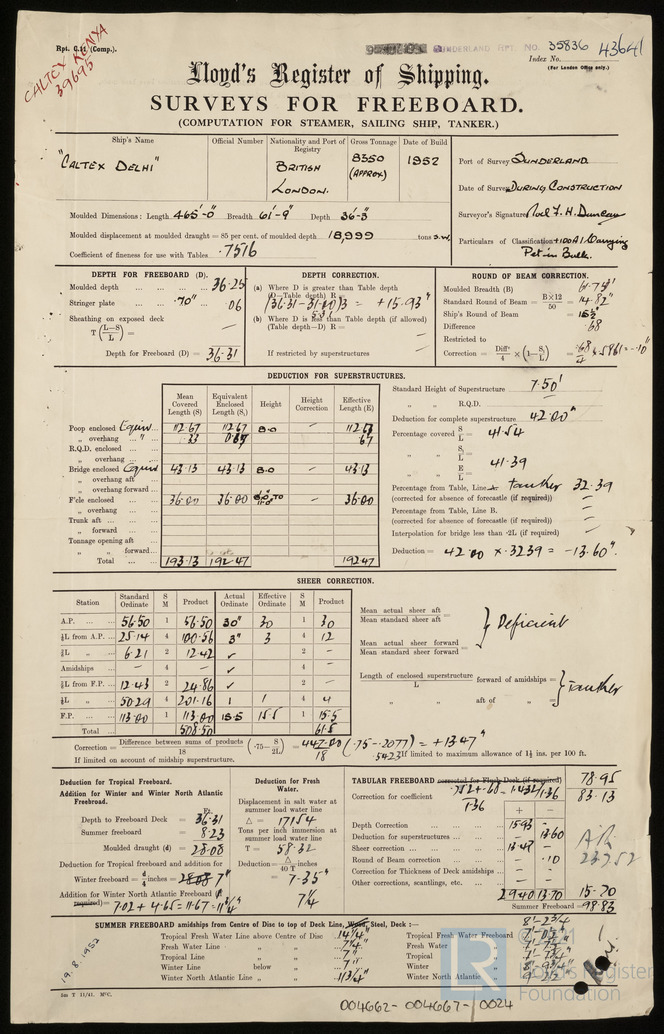 Rpt. C.11 (Comp.).
CALTEX KENYA
39695
SUNDERLAND RPT. NO. 35836
43641
Index No.
(For London Office only.)
Lloyd's Register of Shipping.
SURVEYS FOR FREEBOARD.
(COMPUTATION FOR STEAMER, SAILING SHIP, TANKER.)
Ship's Name Official Number Nationality and Port of Registry Gross Tonnage Date of Build
"CALTEX DELHI" BRITISH LONDON. 8350 (APPROX) 1952
Port of Survey SUNDERLAND
Date of Survey DURING CONSTRUCTION
Surveyor's Signature Noel F. H. Duncan
Particulars of Classification +100A1 Carrying
Pet in Bulk.
Moulded Dimensions: Length 465'-0" Breadth 61'-9" Depth 36'-3"
Moulded displacement at moulded draught = 85 per cent. of moulded depth 18,999 tons S.W.
Coefficient of fineness for use with Tables .7516
DEPTH FOR FREEBOARD (D).
Moulded depth 36.25
Stringer plate .70" .06
Sheathing on exposed deck
T (L–S/L) = —
Depth for Freeboard (D) = 36.31
DEPTH CORRECTION.
(a) Where D is greater than Table depth
(D—Table depth) R =
(36.31-31.00)3 = +15.93"
5.31
(b) Where D is less than Table depth (if allowed)
(Table depth—D) R = —
If restricted by superstructures —
ROUND OF BEAM CORRECTION.
Moulded Breadth (B) 61.75'
Standard Round of Beam = B×12/50 = 14.82"
Ship's Round of Beam = 15½"
Difference .68
Restricted to
Correction = Diff/4 × (1–S₁/L) = .68/4 × .5861 = -.10"
DEDUCTION FOR SUPERSTRUCTURES.
Mean Covered Length (S) Equivalent Enclosed Length (S₁) Height Height Correction Effective Length (E)
Poop enclosed Equiv 112.67 8.0 —
„ overhang „ .67
R.Q.D. enclosed
„ overhang
Bridge enclosed Equiv 43.13 43.13 8.0 43.13
„ overhang aft
„ overhang forward
F'cle enclosed 36.00 36.00 8.0 TO 11.0 — 36.00
„ overhang
Trunk aft
„ forward
Tonnage opening aft
„ „ forward
Total 193.13 192.47 192.47
Standard Height of Superstructure 7.50'
„ „ R.Q.D. —
Deduction for complete superstructure 42.00"
Percentage covered S/L = 41.54
„ „ S₁/L =
41.39
„ „ E/L =
Percentage from Table, Line tanker 32.39
(corrected for absence of forecastle (if required)) —
Percentage from Table, Line B. —
(corrected for absence of forecastle (if required)) —
Interpolation for bridge less than ·2L (if required) —
Deduction = 42.00 × .3239 = -13.60".
SHEER CORRECTION.
Station Standard Ordinate S M Product Actual Ordinate Effective Ordinate S M Product
A.P. 56.50 1 56.50 30" 30 1 30
⅙L from A.P. 25.14 4 100.56 3" 3 4 12
⅓L „ 6.21 2 12.42 ✓ 2 —
Amidships — 4 — ✓ 4 —
⅓L from F.P. 12.43 2 24.86 ✓ 2 —
⅙L „ 50.29 4 201.16 1 1 4 4
F.P. 113.00 1 113.00 15.5 15.5 1 15.5
Total 508.50 61.5
Mean actual sheer aft
Mean standard sheer aft =
Mean actual sheer forward
Mean standard sheer forward =
Deficient
Length of enclosed superstructure/L forward of amidships =
„ „ aft of „ =
Tanker
Correction = Difference between sums of products/18 (·75–S/2L) = 447.00/18 (.75-.2077) = +13.47"
.5423
If limited on account of midship superstructure.
If limited to maximum allowance of 1½ ins. per 100 ft.
Deduction for Tropical Freeboard.
Addition for Winter and Winter North Atlantic Freeboard.
Ft.
Depth to Freeboard Deck = 36.31
Summer freeboard = 8.23
Moulded draught (d) = 28.08
Deduction for Tropical freeboard and addition for
Winter freeboard = d/4 inches = 28.08 7"
Addition for Winter North Atlantic Freeboard (if required) =
7.02 + 4.65 = 11.67 = 11¾"
Deduction for Fresh Water.
Displacement in salt water at summer load water line
Δ = 17154
Tons per inch immersion at summer load water line
T = 58.32
Deduction = Δ/40 T inches
= 7.35"
7¼
TABULAR FREEBOARD corrected for Flush Deck (if required) 78.95
Correction for coefficient .752+.68/1.36 = 1.432/1.36 83.13
+ —
Depth Correction 15.93 —
Deduction for superstructures — 13.60
Sheer correction 13.47 —
Round of Beam correction — .10
Correction for Thickness of Deck amidships — —
Other corrections, scantlings, etc. — —
29.40 13.70 15.70
Summer Freeboard = 98.83
SUMMER FREEBOARD amidships from Centre of Disc to top of Deck Line, Wood, Steel, Deck :— 8'-2¾"
Tropical Fresh Water Line above Centre of Disc 14¼"
Fresh Water Line „ „ 7¼"
Tropical Line „ „ 7"
Winter Line below „ 7"
Winter North Atlantic Line „ „ 11¾"
Tropical Fresh Water Freeboard
Fresh Water „
Tropical „ 7'-7¾"
Winter „ 8'-9¾"
Winter North Atlantic „ 9'-2½"
19.8.1952
2m T 11/41. MºC.
LR
Lloyd's Register
Foundation
004662-004667-0024